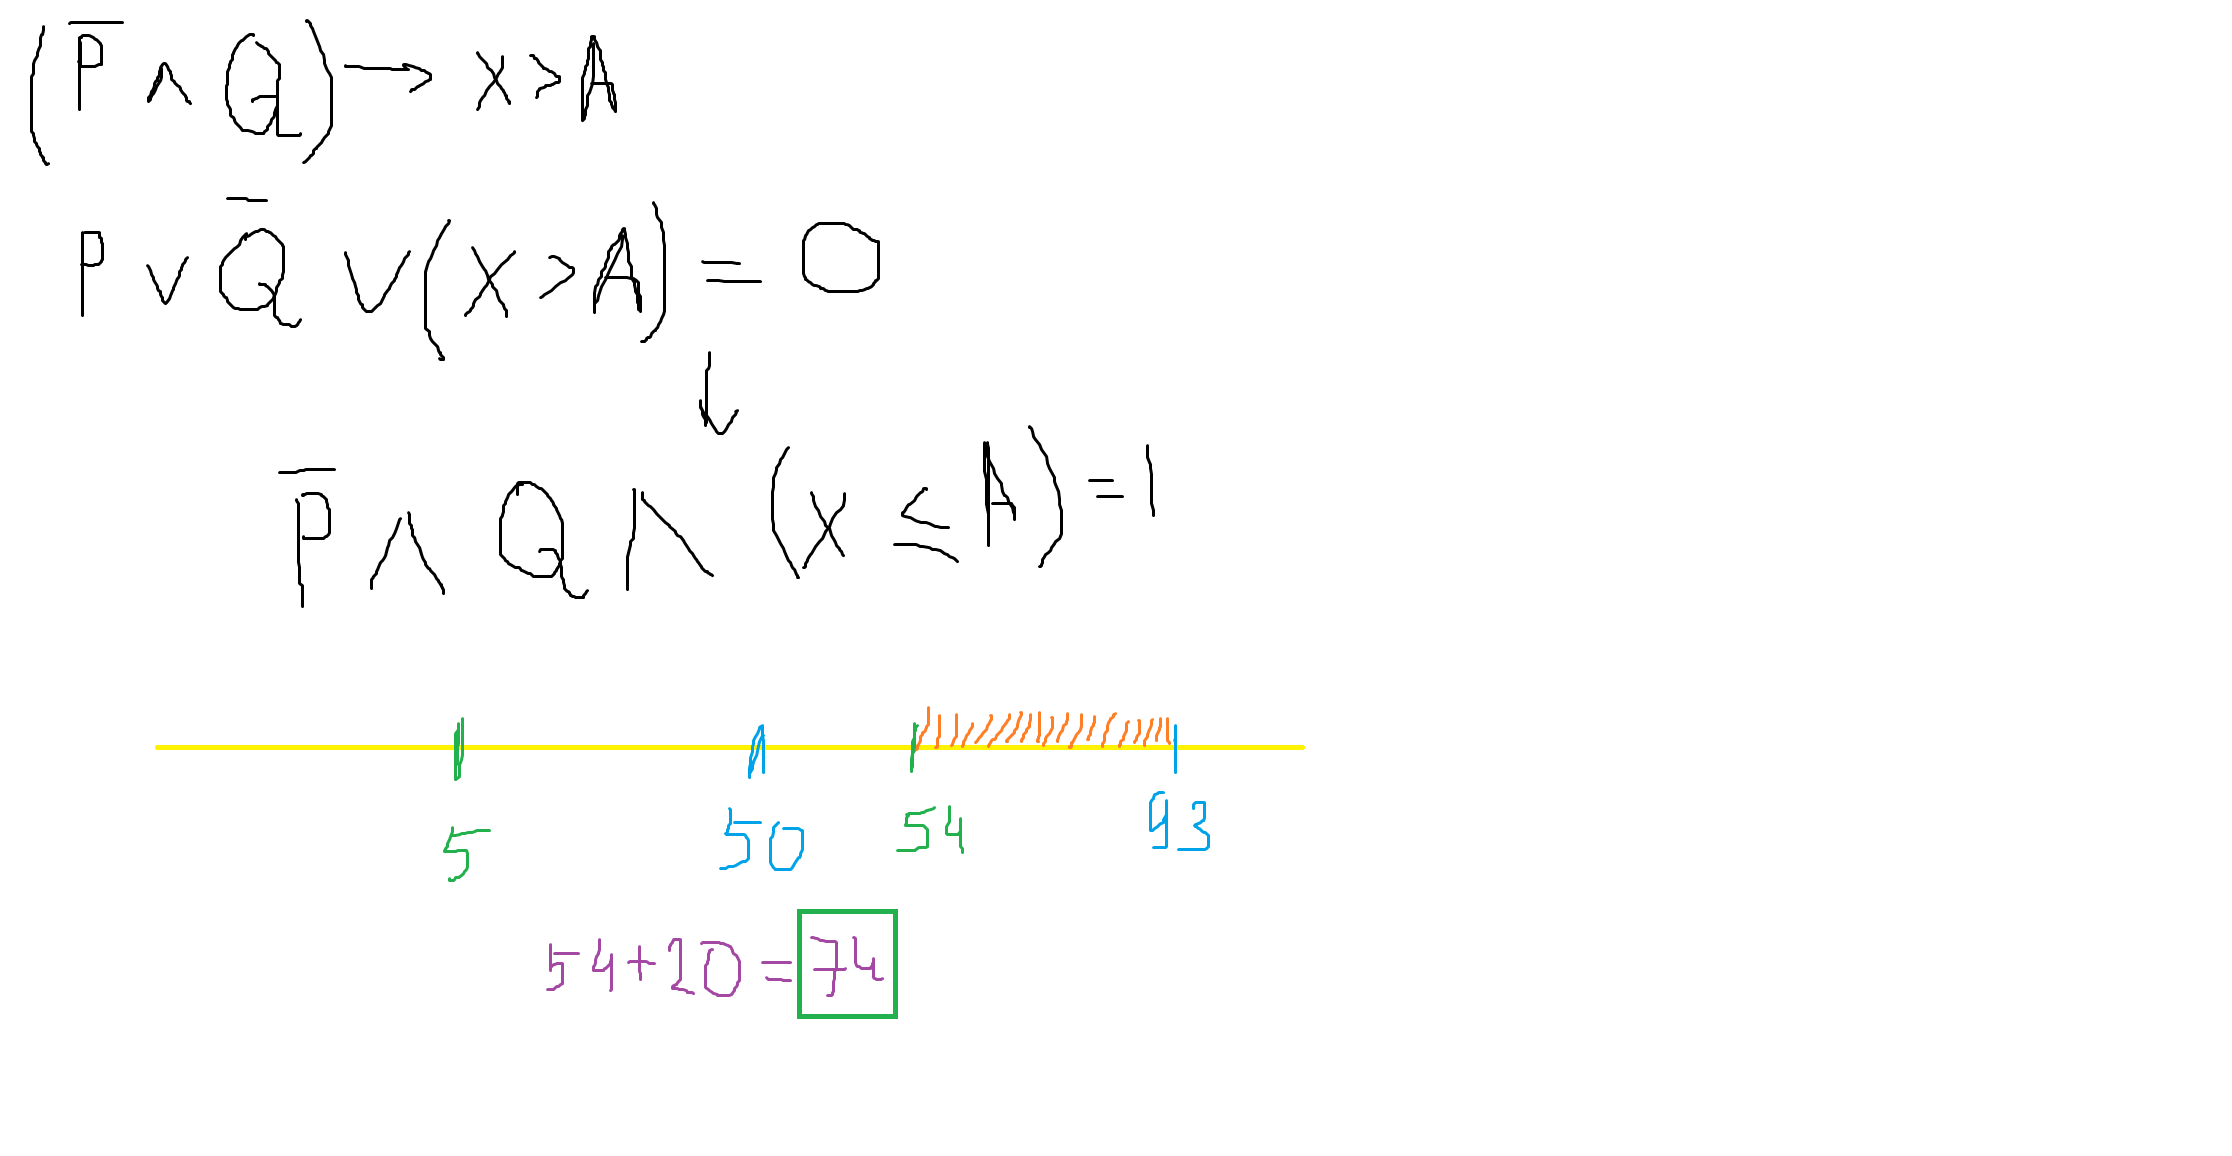 (P̅ ∧ Q) → x > A
P ∨ Q̅ ∨ (x > A) = 0
↓
P̅ ∧ Q ∧ (x ≤ A) = 1
5 50 54 93
54 + 20 = 74